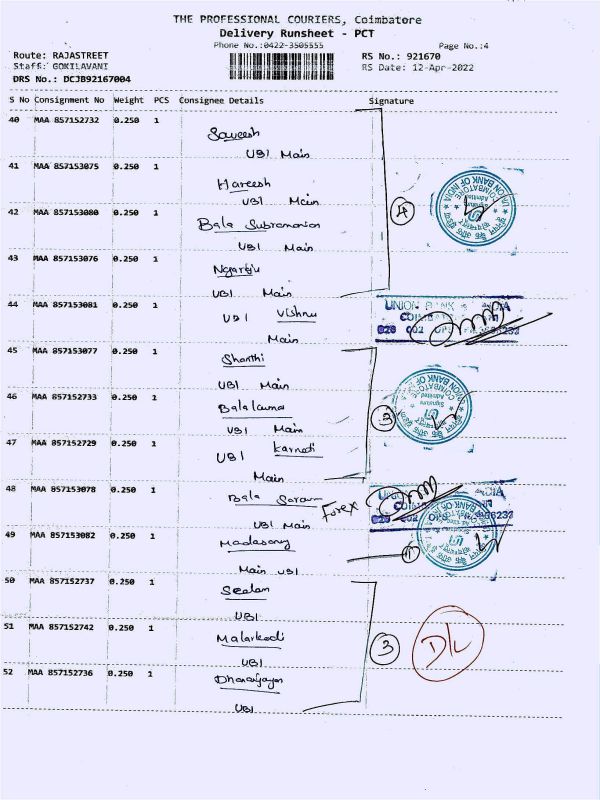 THE PROFESSIONAL COURIERS, Coimbatore
Delivery Runsheet - PCT
Phone No.:0422-3505555
Page No.:4
Route: RAJASTREET
RS No.: 921670
Staff: GOKILAVANI
RS Date: 12-Apr-2022
DRS No.: DCJB92167004
S No Consignment No Weight PCS Consignee Details Signature
40 MAA 857152732 0.250 1
UBI Main
41 MAA 857153075 0.250 1
Hareesh
UBI Main
42 MAA 857153080 0.250 1
Bala Subramanian
UBI Main
4
UNION BANK OF INDIA
COIMBATORE
43 MAA 857153076 0.250 1
UBI Main
44 MAA 857153081 0.250 1
UBI Vishnu
Main
UNION BANK
45 MAA 857153077 0.250 1
Shanthi
UBI Main
46 MAA 857152733 0.250 1
UBI Main
3
UNION BANK OF
COIMBATORE
47 MAA 857152729 0.250 1
UBI
Main
48 MAA 857153078 0.250 1
Bala
Forex
UBI Main
49 MAA 857153082 0.250 1
Madasamy
Main UBI
1
50 MAA 857152737 0.250 1
UBI
51 MAA 857152742 0.250 1
Malarkodi
UBI
3
D/L
52 MAA 857152736 0.250 1
UBI